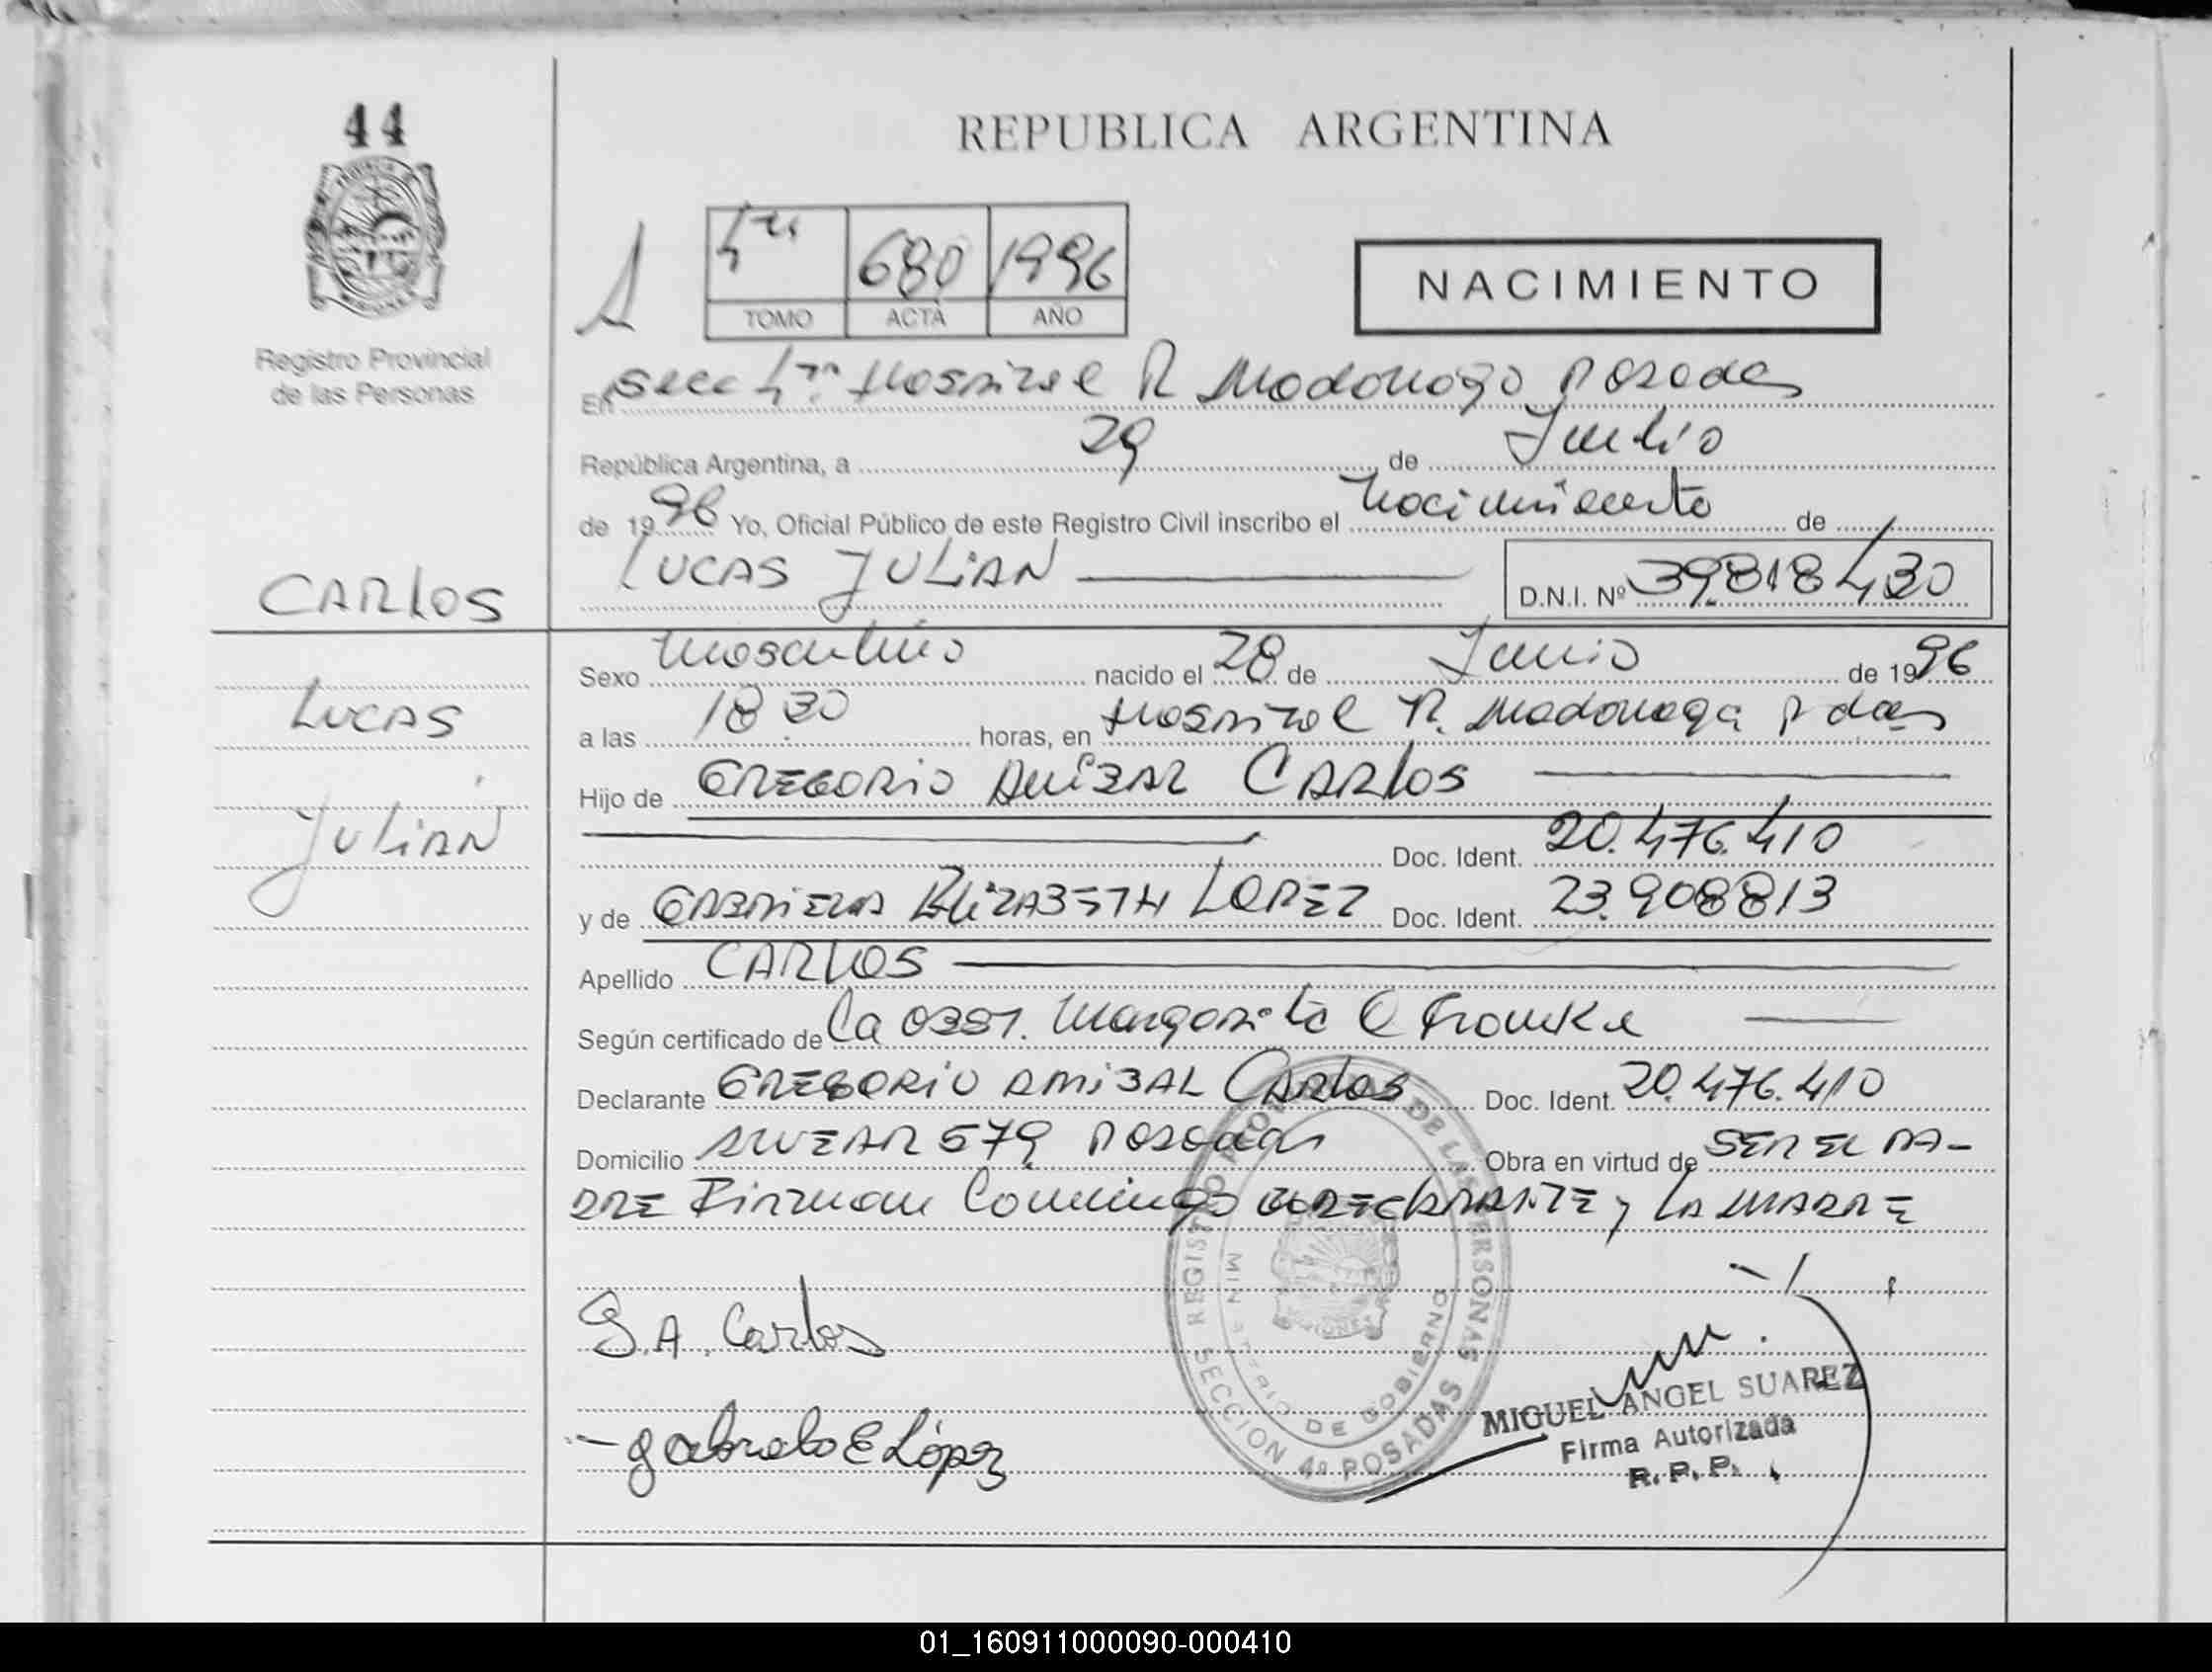 44
REPUBLICA ARGENTINA
1
4ta 680 1996
TOMO ACTA AÑO
NACIMIENTO
Registro Provincial
de las Personas
En Secc 4ta Hospital R Madariaga Posadas
República Argentina, a 29 de Julio
de 1996 Yo, Oficial Público de este Registro Civil inscribo el Nacimiento de
LUCAS JULIAN
D.N.I. Nº 39.818430
CARLOS
LUCAS
JULIAN
Sexo Masculino nacido el 28 de Junio de 1996
a las 18 30 horas, en Hospital R. Madariaga Pdas
Hijo de GREGORIO ANIBAL CARLOS
Doc. Ident. 20.476.410
y de GABRIELA ELIZABETH LOPEZ Doc. Ident. 23.908813
Apellido CARLOS
Según certificado de la Obst. Margarita
Declarante GREGORIO ANIBAL CARLOS Doc. Ident. 20.476.410
Domicilio ALVEAR 579 Posadas Obra en virtud de SER EL PA-
DRE Firman Conmigo DECLARANTE y LA MADRE
G.A. Carlos
Gabriela E López
REGISTRO PROVINCIAL DE LAS PERSONAS
MINISTERIO DE GOBIERNO
MISIONES
SECCION 4ª POSADAS
MIGUEL ANGEL SUAREZ
Firma Autorizada
R. P. P.
01_160911000090-000410